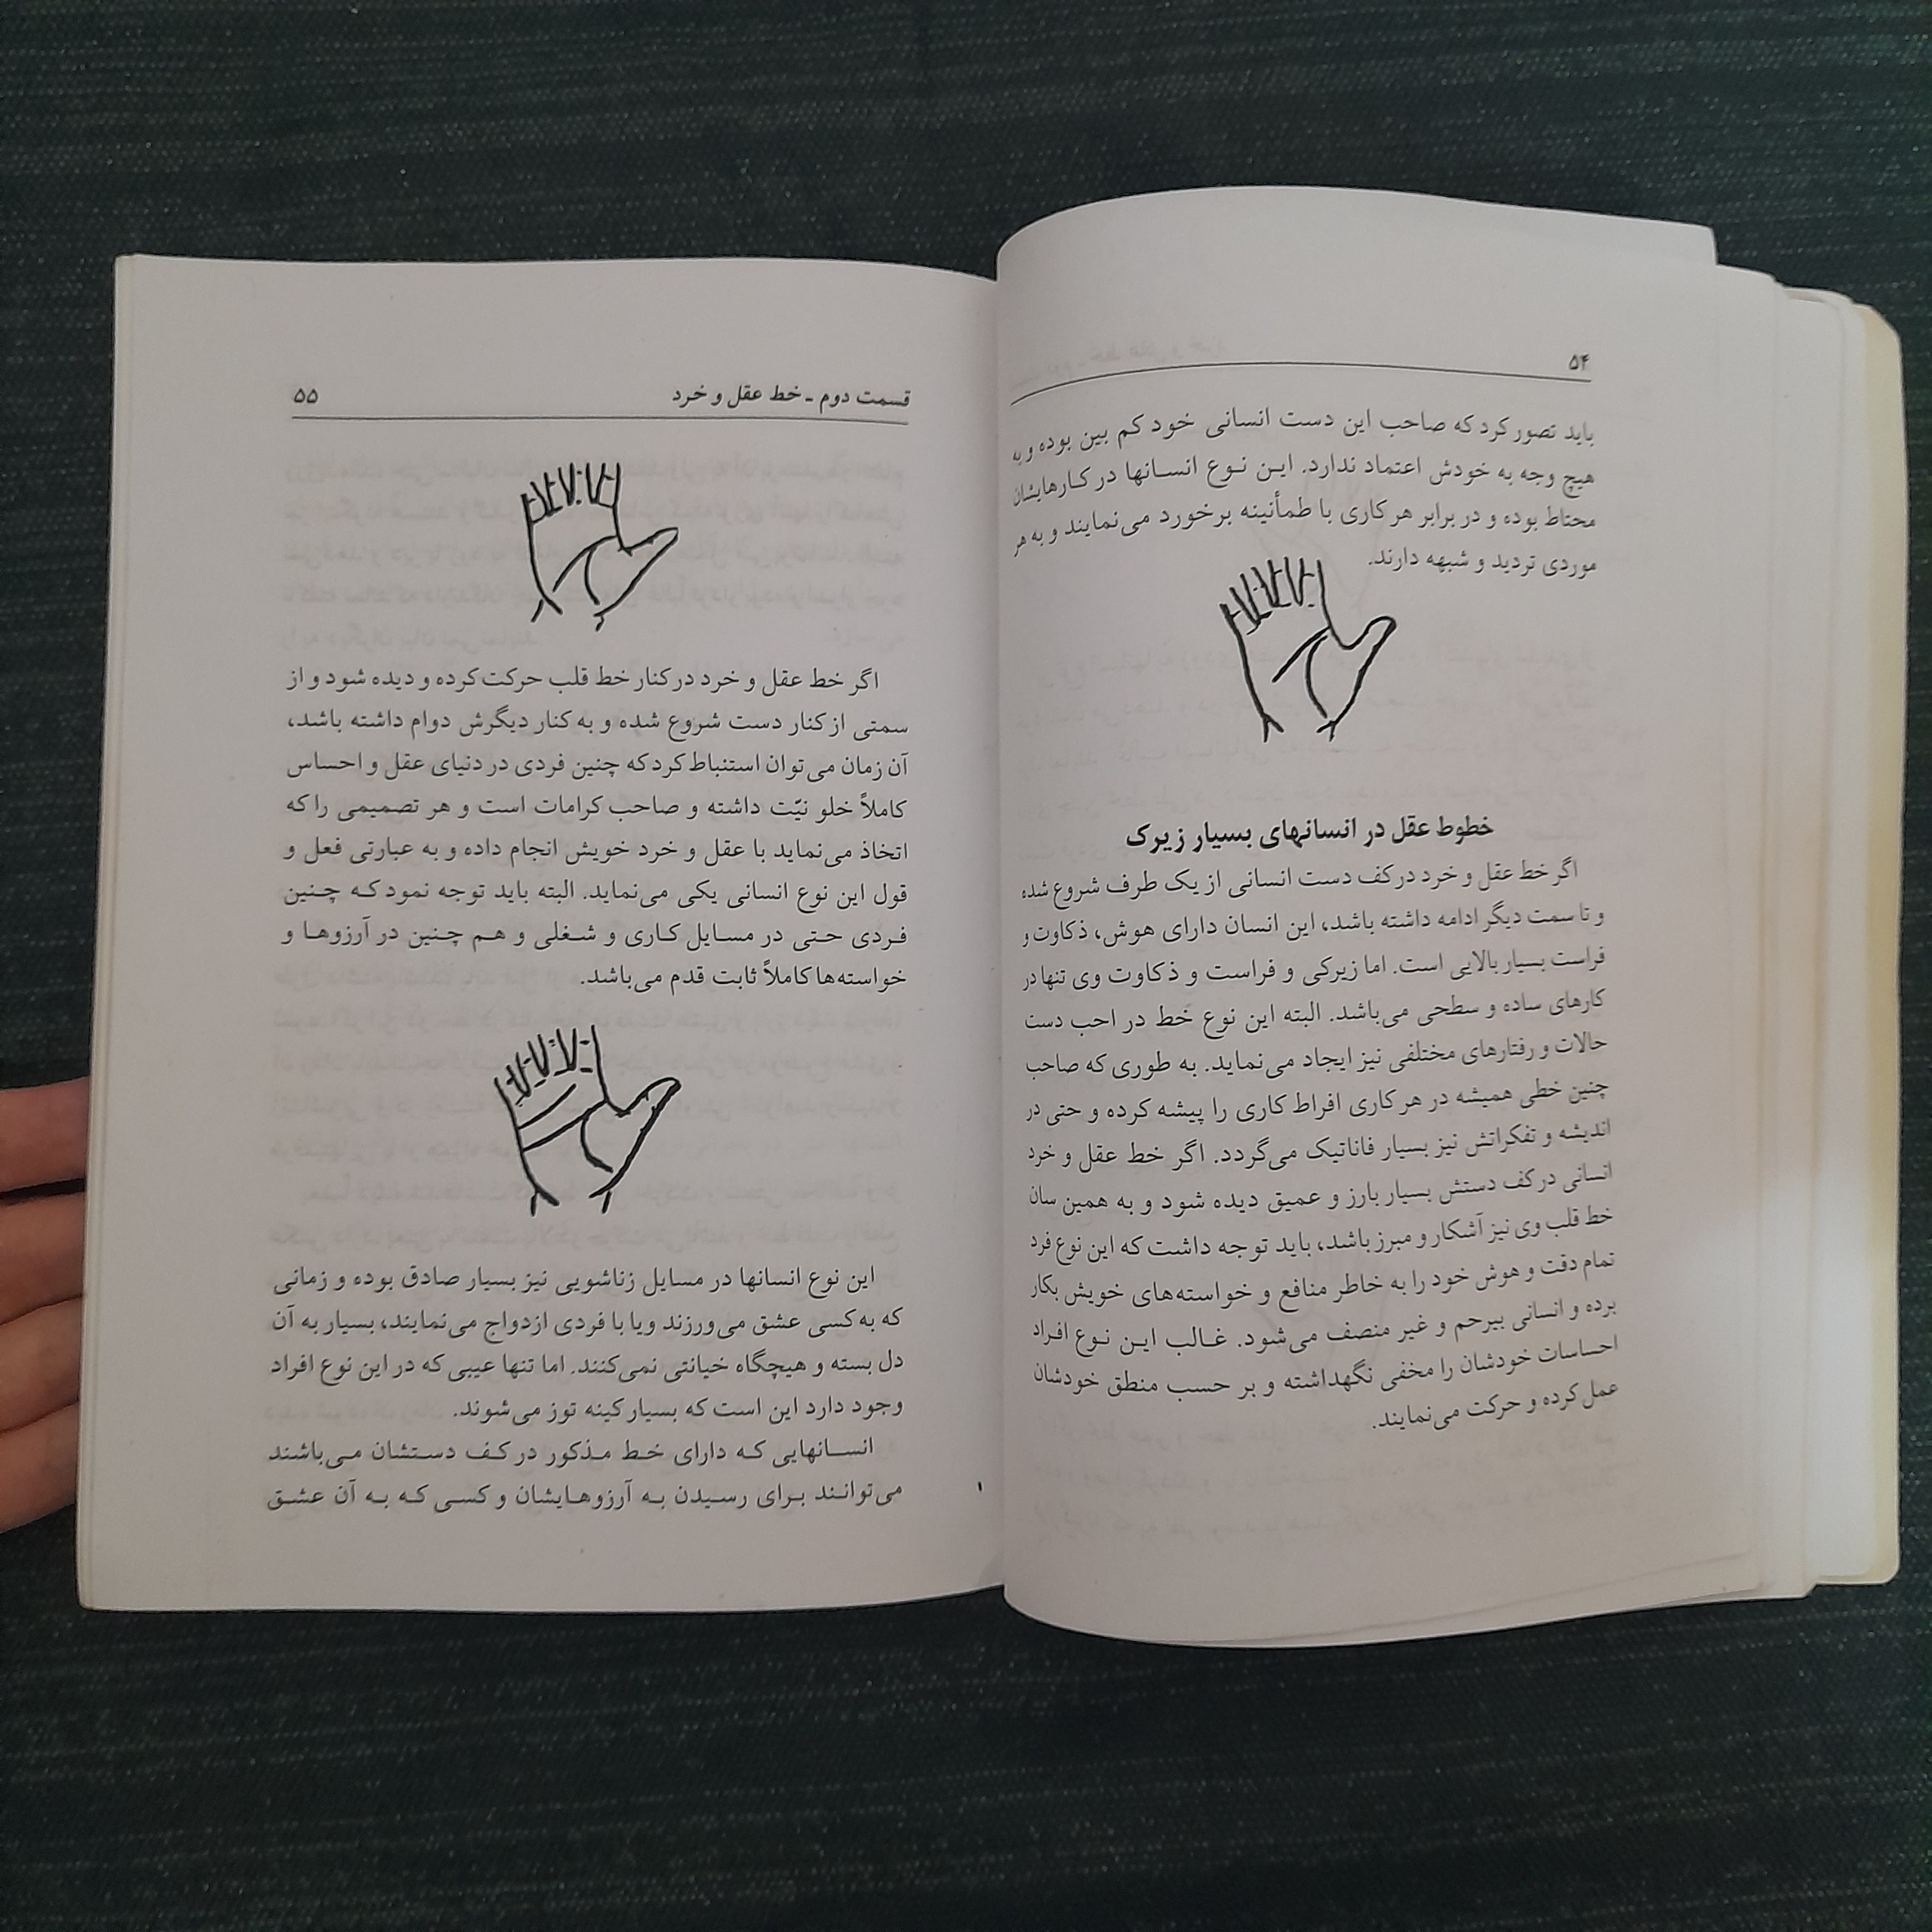 ۵۴
باید تصور کرد که صاحب این دست انسانی خود کم بین بوده و به
هیچ وجه به خودش اعتماد ندارد. این نوع انسانها در کارهایشان
محتاط بوده و در برابر هر کاری با طمأنینه برخورد می‌نمایند و به هر
موردی تردید و شبهه دارند.
خطوط عقل در انسانهای بسیار زیرک
اگر خط عقل و خرد در کف دست انسانی از یک طرف شروع شده
و تا سمت دیگر ادامه داشته باشد، این انسان دارای هوش، ذکاوت و
فراست بسیار بالایی است. اما زیرکی و فراست و ذکاوت وی تنها در
کارهای ساده و سطحی می‌باشد. البته این نوع خط در احب دست
حالات و رفتارهای مختلفی نیز ایجاد می‌نماید. به طوری که صاحب
چنین خطی همیشه در هر کاری افراط کاری را پیشه کرده و حتی در
اندیشه و تفکراتش نیز بسیار فاناتیک می‌گردد. اگر خط عقل و خرد
انسانی در کف دستش بسیار بارز و عمیق دیده شود و به همین سان
خط قلب وی نیز آشکار و مبرز باشد، باید توجه داشت که این نوع فرد
تمام دقت و هوش خود را به خاطر منافع و خواسته‌های خویش بکار
برده و انسانی بیرحم و غیر منصف می‌شود. غالب این نوع افراد
احساسات خودشان را مخفی نگهداشته و بر حسب منطق خودشان
عمل کرده و حرکت می‌نمایند.
قسمت دوم - خط عقل و خرد ۵۵
اگر خط عقل و خرد در کنار خط قلب حرکت کرده و دیده شود و از
سمتی از کنار دست شروع شده و به کنار دیگرش دوام داشته باشد،
آن زمان می‌توان استنباط کرد که چنین فردی در دنیای عقل و احساس
کاملاً خلو نیّت داشته و صاحب کرامات است و هر تصمیمی را که
اتخاذ می‌نماید با عقل و خرد خویش انجام داده و به عبارتی فعل و
قول این نوع انسانی یکی می‌نماید. البته باید توجه نمود که چنین
فردی حتی در مسایل کاری و شغلی و هم چنین در آرزوها و
خواسته‌ها کاملاً ثابت قدم می‌باشد.
این نوع انسانها در مسایل زناشویی نیز بسیار صادق بوده و زمانی
که به کسی عشق می‌ورزند ویا با فردی ازدواج می‌نمایند، بسیار به آن
دل بسته و هیچگاه خیانتی نمی‌کنند. اما تنها عیبی که در این نوع افراد
وجود دارد این است که بسیار کینه توز می‌شوند.
انسانهایی که دارای خط مذکور در کف دستشان می‌باشند
می‌توانند برای رسیدن به آرزوهایشان و کسی که به آن عشق